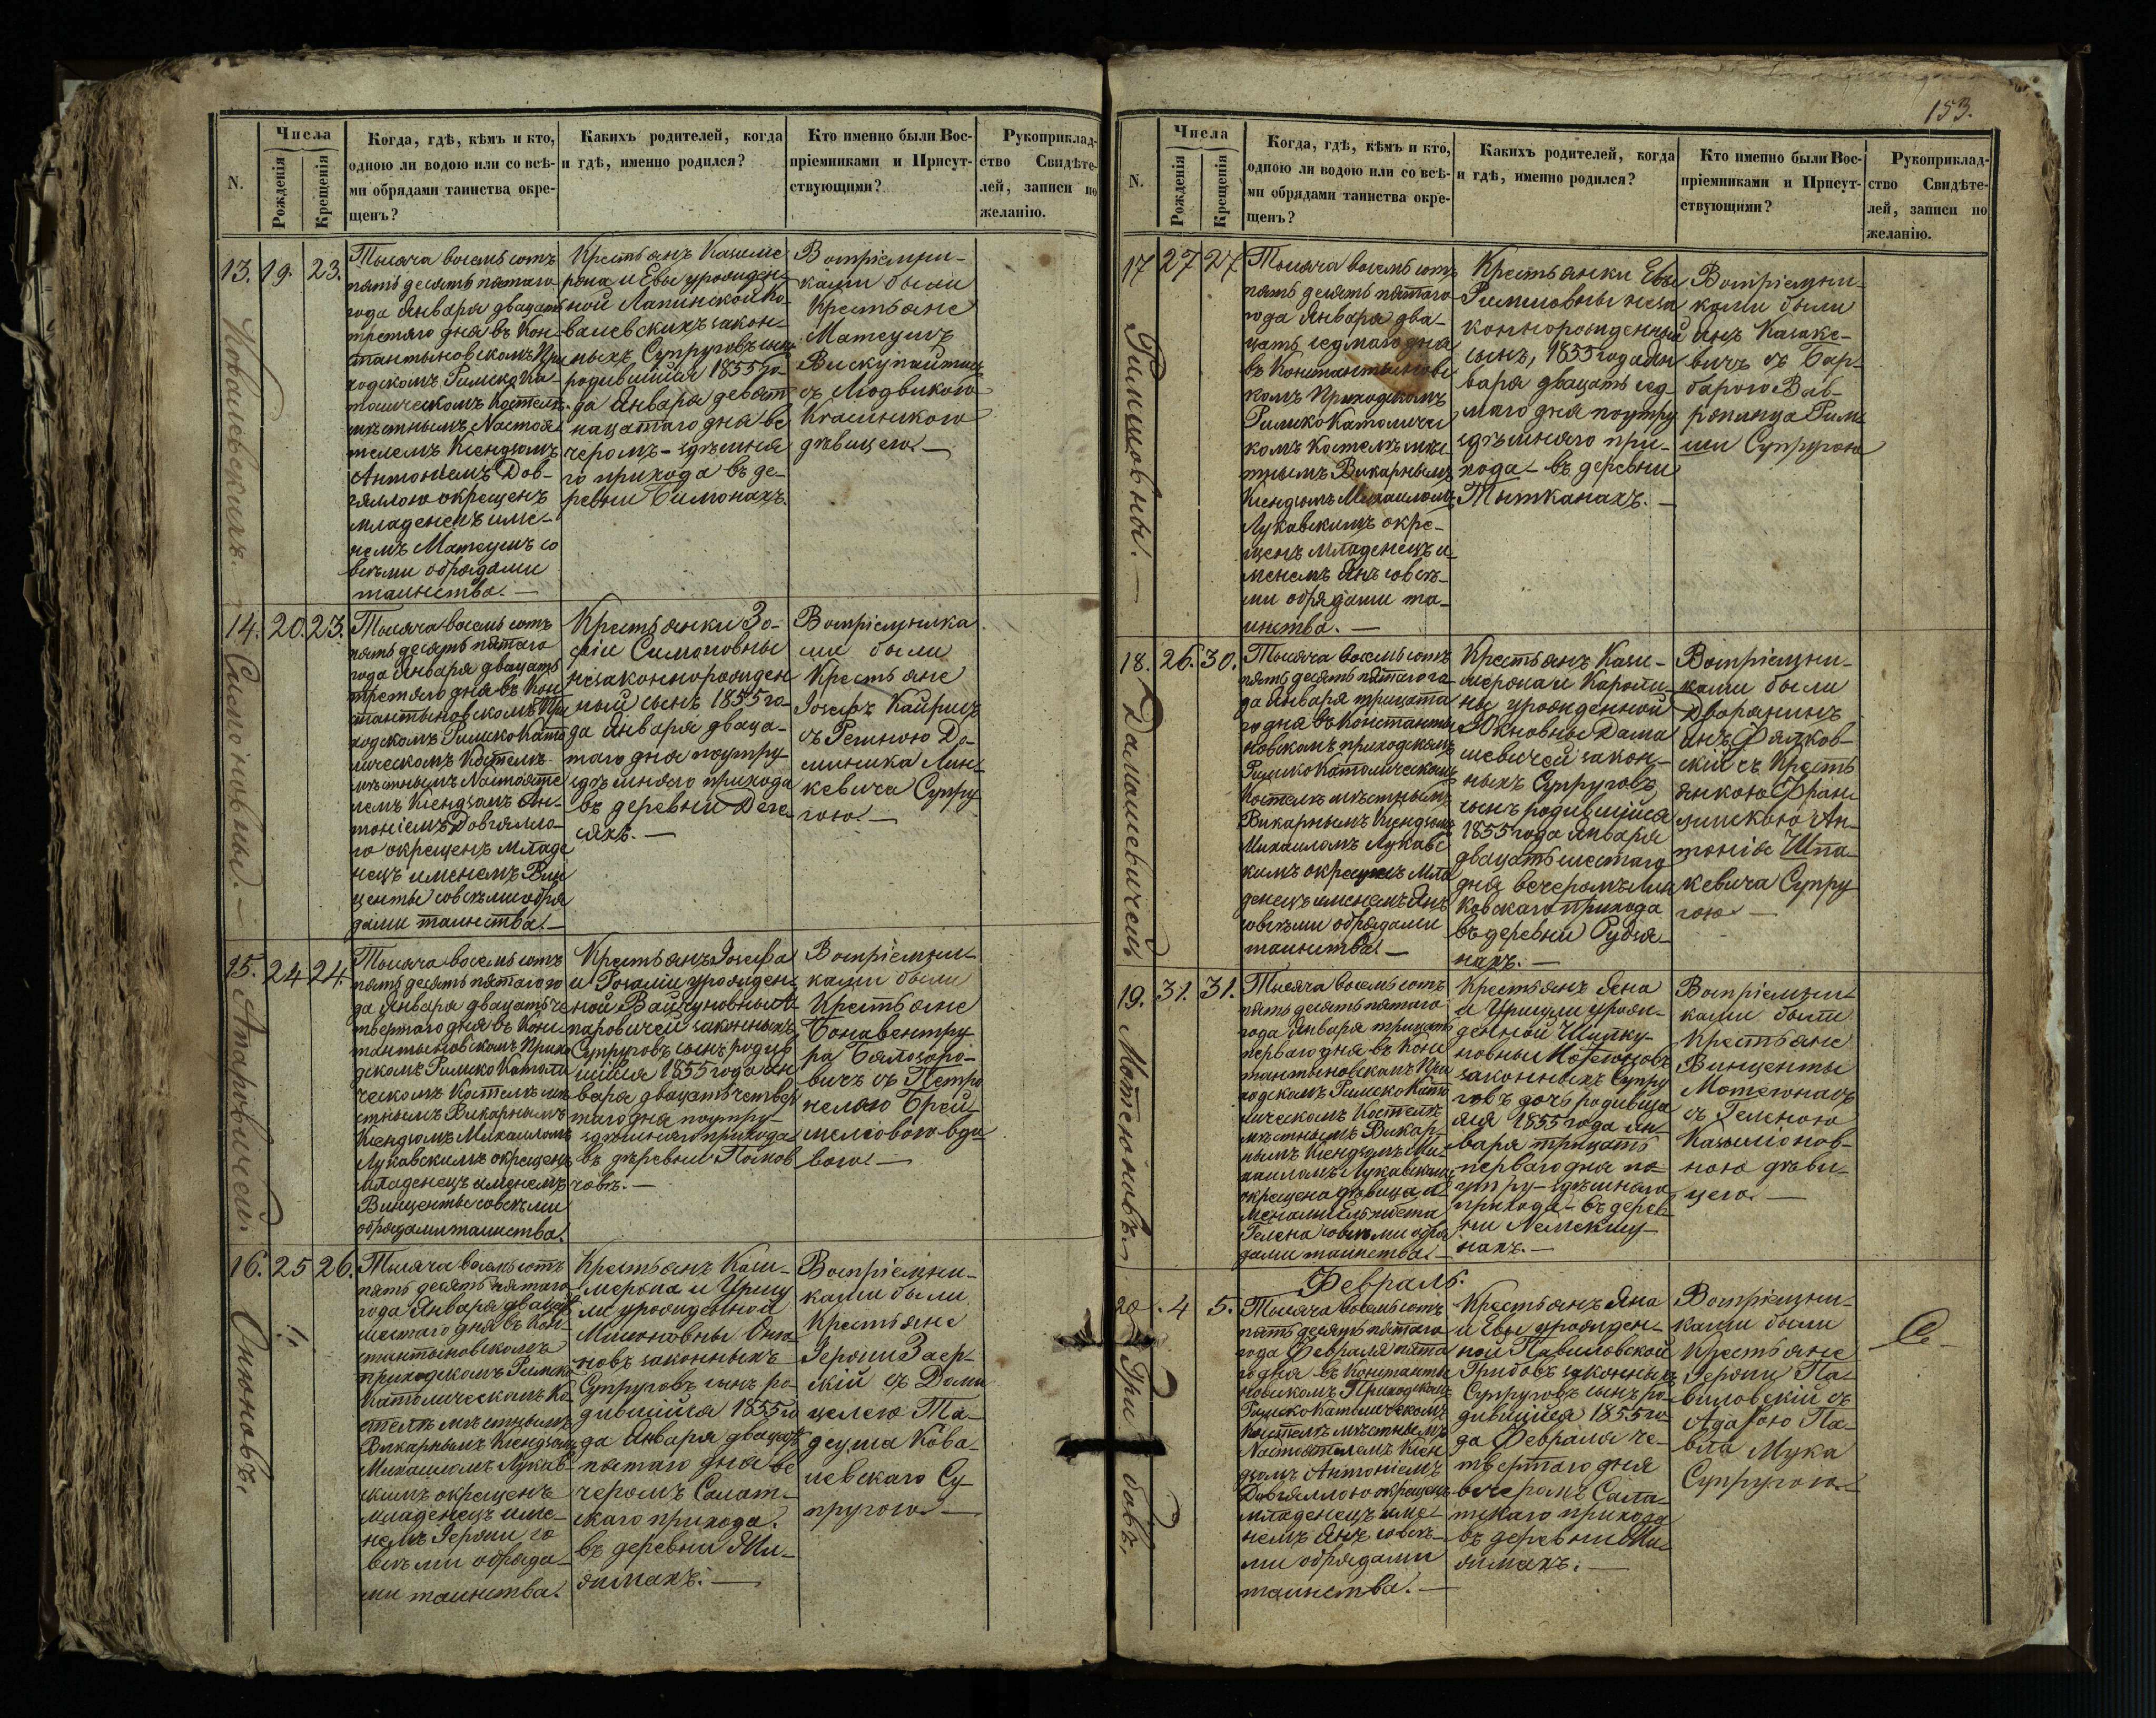 N.
Числа
Рожденія
Крещенія
Когда, гдѣ, кѣмъ и кто,
одною ли водою или со всѣ-
ми обрядами таинства окре-
щенъ?
Какихъ родителей, когда
и гдѣ, именно родился?
Кто именно были Вос-
пріемниками и Присут-
ствующими?
Рукоприклад-
ство Свидѣте-
лей, записи по
желанію.
13. 19. 23.
Ковалевскихъ.
Тысяча восемь сотъ
пять десятъ пятаго
года Января двадцать
третяго дня въ Кон-
стантыновскомъ При
ходскомъ Римско Ка-
толическомъ Костелѣ
мѣстнымъ Настоя
телемъ Ксендзомъ
Антоніемъ Дов-
гялломъ окрещенъ
младенецъ име-
немъ Матеушъ со
всѣми обрядами
таинства.—
Крестьянъ Казиме
ра и Евы урожден-
ной Лапинской Ко-
валевскихъ закон-
ныхъ Супруговъ сынъ
родившійся 1855 го-
да Января девят
надцатаго дня ве
черомъ - здѣшня
го прихода въ де-
ревни Симонахъ.
Воспріемни-
ками были
Крестьяне
Матеушъ
съ Людвикою
дѣвицею.—
14. 20. 23.
Симоновны.—
Тысяча восемь сотъ
пять десятъ пятаго
года Января двадцать
третяго дня въ Кон
стантыновскомъ При
ходскомъ Римско Като
лическомъ Костелѣ
мѣстнымъ Настояте
лемъ Ксендзомъ Ан-
тоніемъ Довгялло-
ю окрещенъ младе
нецъ именемъ Вин
центы со всѣми обря
дами таинства.—
Крестьянки Зо-
фіи Симоновны
незаконнорожден
ный сынъ 1855 го-
да Января двадца-
таго дня поутру
здѣшняго прихода
въ деревни Деге
сяхъ.—
Воспріемника
ми были
Крестьяне
Іосифъ Кайрисъ
съ Региною До-
миника Лин-
кевича Супру
гою.—
15. 24. 24.
Тысяча восемь сотъ
пять десятъ пятаго го
да Января двадцать че
твертаго дня въ Кон-
стантыновскомъ Прихо
дскомъ Римско Католи
ческомъ Костелѣ мѣ
стнымъ Викарнымъ
Ксендзомъ Михаиломъ
Лукавскимъ окрещенъ
младенецъ именемъ
Винценты со всѣми
обрядами таинства.
Крестьянъ Іосифа
и Розаліи урожден-
паровичей законныхъ
Супруговъ сынъ родив
шійся 1855 года Ян
варя двадцать четвер
таго дня поутру—
здѣшняго прихода
въ деревни
Воспріемни-
ками были
Крестьяне
Бонавенту
ра Бялозоро-
вичъ съ Петро
нелею
вдо
вою.—
16. 25 26.
Онюновъ.
Тысяча восемь сотъ
пять десятъ пятаго
года Января двадцать
шестаго дня въ Кон-
стантыновскомъ
приходскомъ Римско
Католическомъ Ко-
стелѣ мѣстнымъ
Викарнымъ Ксендзомъ
Михаиломъ Лукав-
скимъ окрещенъ
младенецъ име-
немъ Іеронимъ со
всѣми обряда-
ми таинства.
Крестьянъ Кази-
мера и Уршу
ли урожденной
новъ законныхъ
Супруговъ сынъ ро-
дившійся 1855 го
да Января двадцать
пятаго дня ве
черомъ Салат-
скаго прихода.
въ деревни
Воспріемни-
ками были
Крестьяне
съ Доми
целею Та-
деуша Кова-
левскаго Су-
пругою.—
153.
N.
Числа
Рожденія
Крещенія
Когда, гдѣ, кѣмъ и кто,
одною ли водою или со всѣ-
ми обрядами таинства окре-
щенъ?
Какихъ родителей, когда
и гдѣ, именно родился?
Кто именно были Вос-
пріемниками и Присут-
ствующими?
Рукоприклад-
ство Свидѣте-
лей, записи по
желанію.
17 27 27
Римшовны.—
Тысяча восемь сотъ
пять десятъ пятаго
года Января два-
дцать седмаго дня
въ Константыновс
комъ Приходскомъ
Римско Католичес
комъ Костелѣ мѣс
тнымъ Викарнымъ
Ксендзомъ Михаиломъ
Лукавскимъ окре-
щенъ младенецъ и-
менемъ Янъ со всѣ-
ми обрядами та-
инства.—
Крестьянки Евы
Римшовны неза
коннорожденный
сынъ, 1855 года Ян
варя двадцать сед-
маго дня поутру
здѣшняго при-
хода - въ деревни
Тытканахъ.—
Воспріемни-
ками были
съ Бар-
барою
Рим
ши Супругою
18. 26. 30.
Далишевичей
Тысяча восемь сотъ
пять десятъ пятаго го
да Января тридцата
го дня въ Константы
новскомъ приходскомъ
Римско Католическомъ
Костелѣ мѣстнымъ
Викарнымъ Ксендзомъ
Михаиломъ Лукавс
кимъ окрещенъ мла
денецъ именемъ Янъ
со всѣми обрядами
таинства.—
Крестьянъ Кази-
мера и Кароли-
ны урожденной
шевичей закон-
ныхъ Супруговъ
сынъ родившійся
1855 года Января
двадцать шестаго
дня вечеромъ Лин
ковскаго прихода
въ деревни Рудзя
нахъ.—
Воспріемни-
ками были
Дворянинъ
Янъ Фялков-
скій съ Кресть
янкою Фран
цишкою Ан-
тонія Шпа-
кевича Супру
гою—
19. 31. 31.
Мотеюновъ.
Тысяча восемь сотъ
пять десятъ пятаго
года Января тридцать
перваго дня въ Конс
тантыновскомъ При
ходскомъ Римско Като
лическомъ Костелѣ
мѣстнымъ Викар-
нымъ Ксендзомъ Ми-
хаиломъ Лукавскимъ
окрещена дѣвица и-
менами Ельжбета
Гелена со всѣми обря
дами таинства.—
Крестьянъ Яна
и Уршули урож-
денной
новны Мотеюновъ
законныхъ Супру
говъ дочь родивша
яся 1855 года Ян-
варя тридцать
перваго дня по-
утру - здѣшняго
прихода - въ дерев
ни
нахъ.—
Воспріемни-
ками были
Крестьяне
Винценты
Мотеюнасъ
съ Геленою
ною дѣви-
цею.—
Февраль.
20. 4 5.
Грибовъ.
Тысяча восемь сотъ
пять десятъ пятаго
года Февраля пята
го дня въ Константы
новскомъ Приходскомъ
Римско Католическомъ
Костелѣ мѣстнымъ
Настоятелемъ Ксен
дзомъ Антоніемъ
Довгяллою окрещенъ
младенецъ име-
немъ Янъ со всѣ-
ми обрядами
таинства.—
Крестьянъ Яна
и Евы урожден-
ной Павиловской
Грибовъ законныхъ
Супруговъ сынъ ро-
дившійся 1855 го-
да Февраля че-
твертаго дня
вечеромъ Сала-
тскаго прихода
въ деревни
Воспріемни-
ками были
Крестьяне
Іеронимъ Па-
виловскій съ
Агатою Па-
вла Мука
Супругою.—